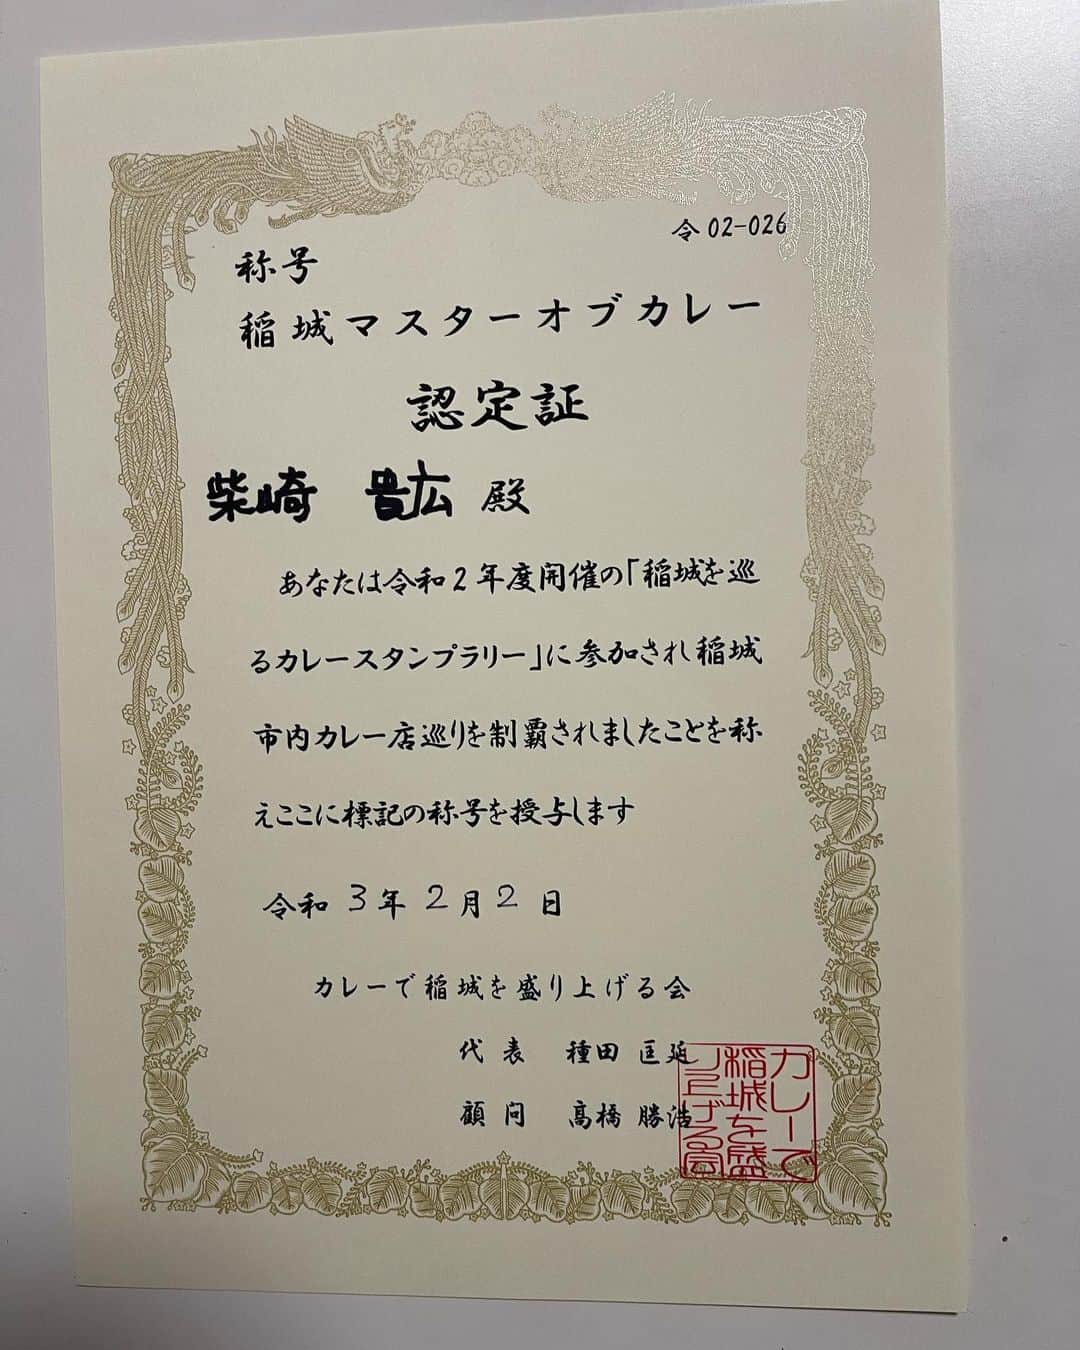 令02-026
称号
稲城マスターオブカレー
認定証
柴崎 貴広 殿
あなたは令和2年度開催の「稲城を巡
るカレースタンプラリー」に参加され稲城
市内カレー店巡りを制覇されましたことを称
えここに標記の称号を授与します
令和 3年 2月 2日
カレーで稲城を盛り上げる会
代表 種田 匡延
顧問 髙橋 勝浩
カレーで
稲城を盛
り上げる会